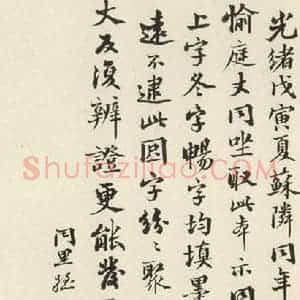 光緒戊寅夏蘇隣同年
愉庭丈同坐取此本示同
上字冬字暢字均填墨
遠不逮此因字紛〻聚
大反復辨證更能發
同里
Shufaziliao.com